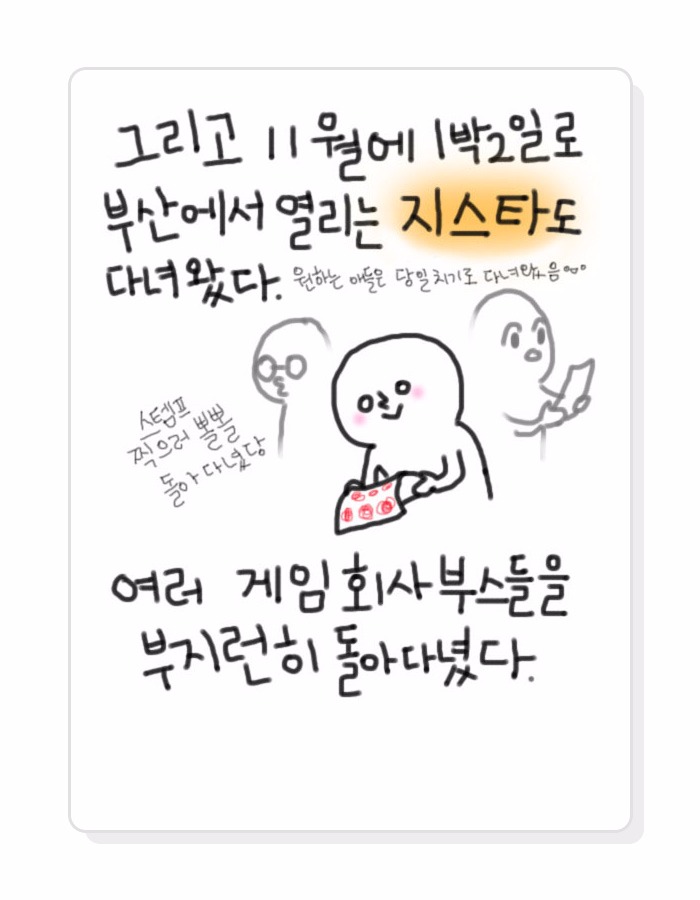 그리고 11월에 1박2일로
부산에서 열리는 지스타도
다녀왔다. 원하는 애들은 당일치기로 다녀왔음
스템프
찍으러 뽈뽈
돌아다녔당
여러 게임회사부스들을
부지런히 돌아다녔다.